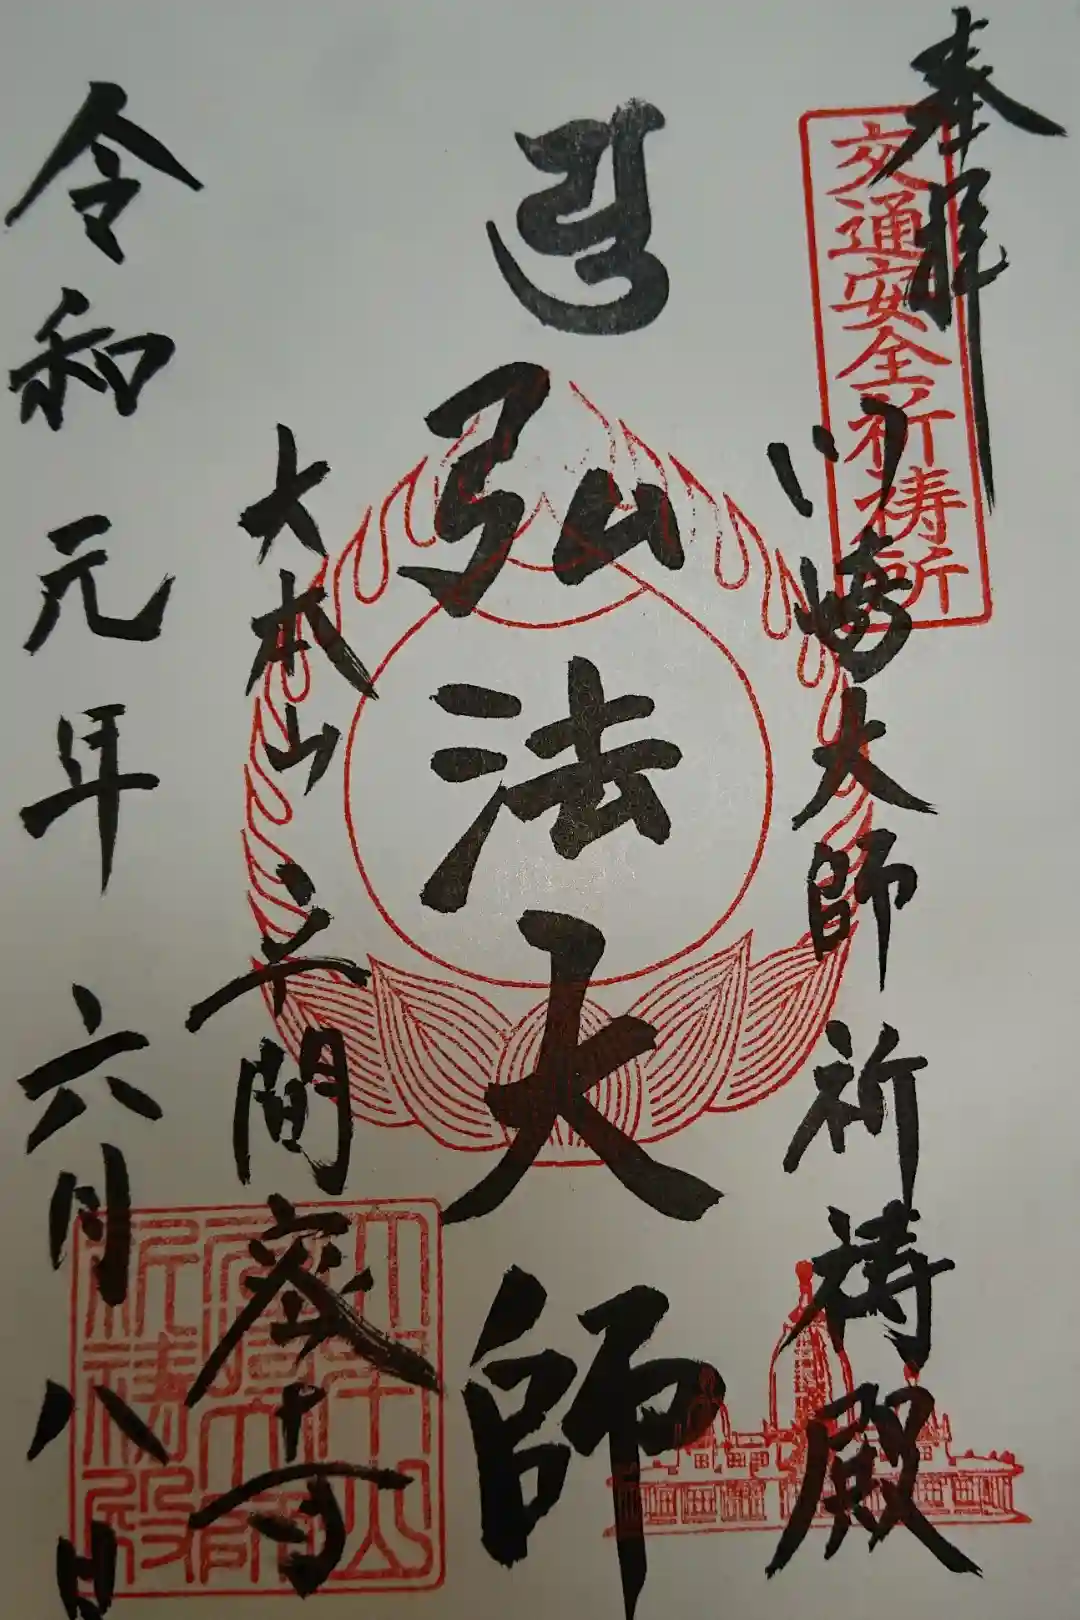 奉拝
交通安全祈祷所
川崎大師祈祷殿
弘法大師
大本山
平間寺
令和元年六月八日